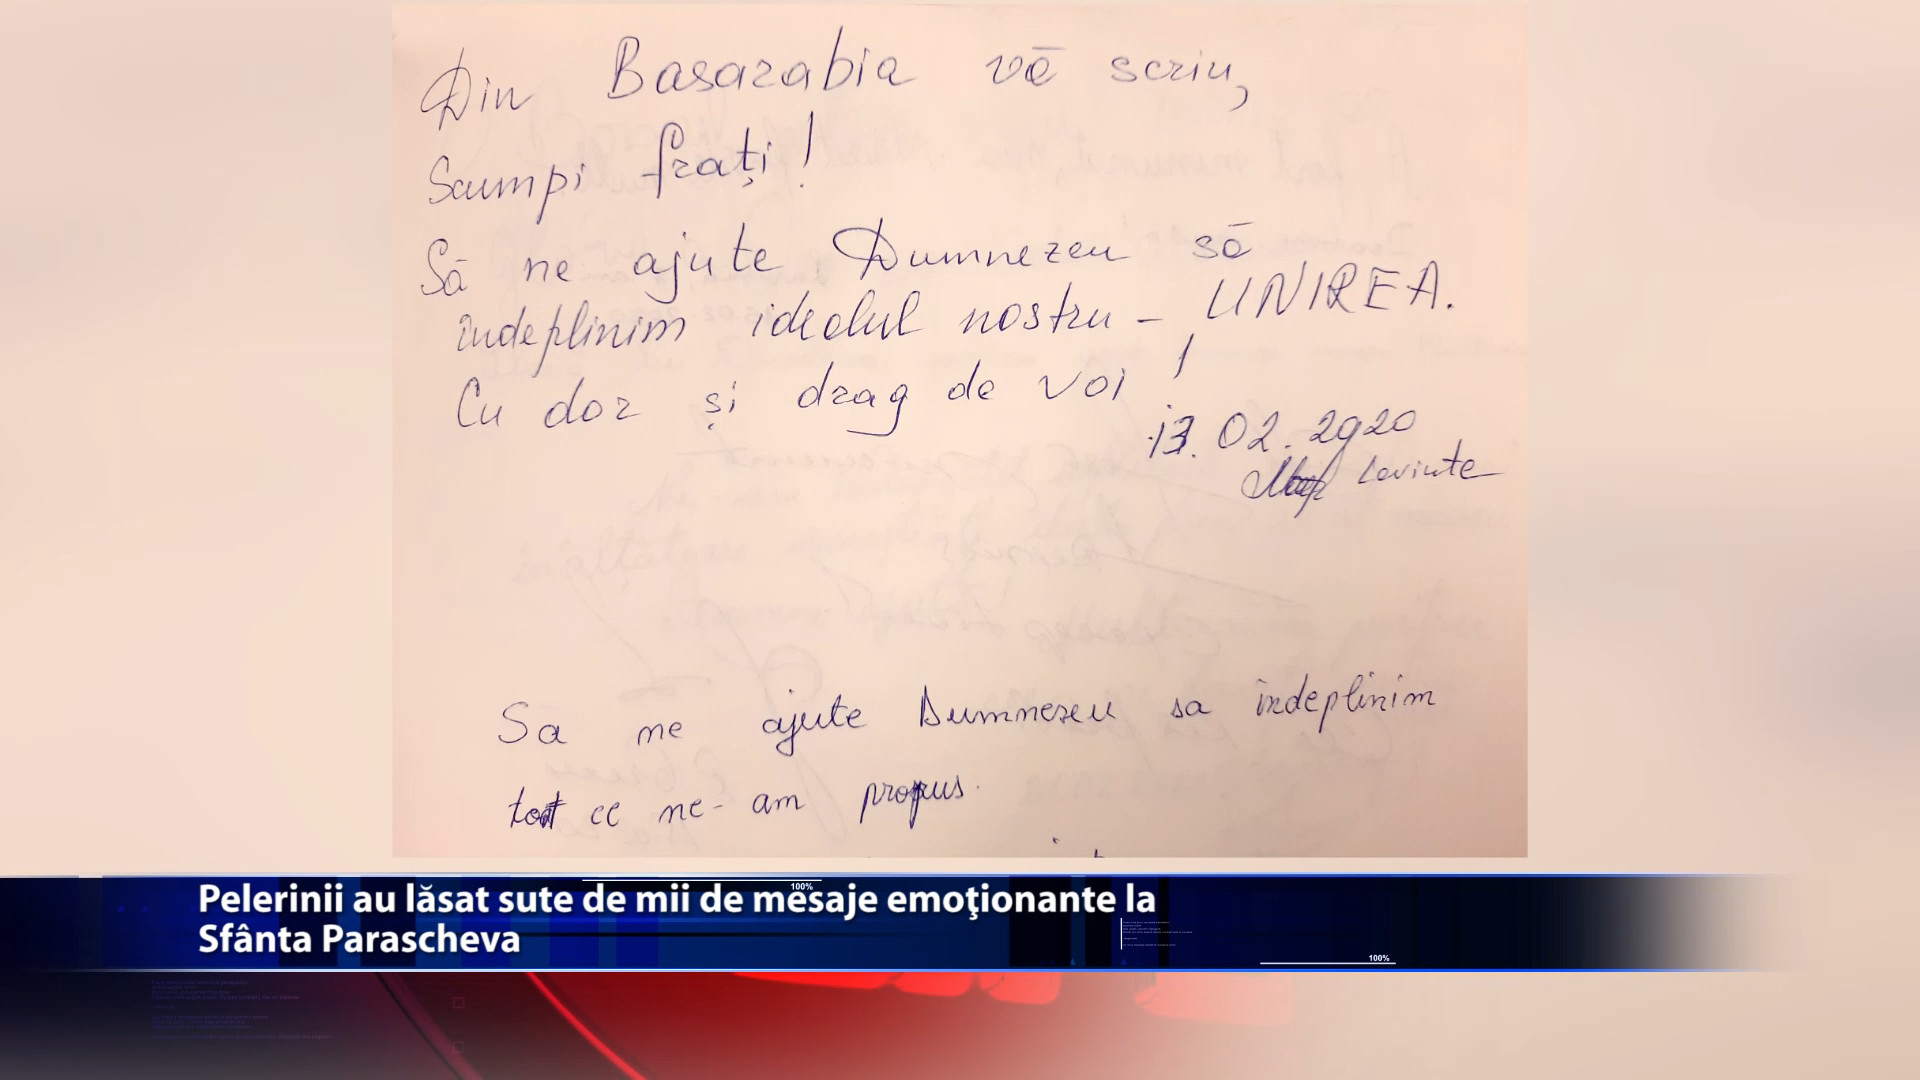 Din Basarabia vă scriu,
Scumpi frați!
Să ne ajute Dumnezeu să
îndeplinim idealul nostru - UNIREA.
Cu dor și drag de voi!
13.02.2020
Sa ne ajute Dumnezeu sa îndeplinim
tot ce ne-am propus.
100%
Pelerinii au lăsat sute de mii de mesaje emoţionante la
Sfânta Parascheva
100%